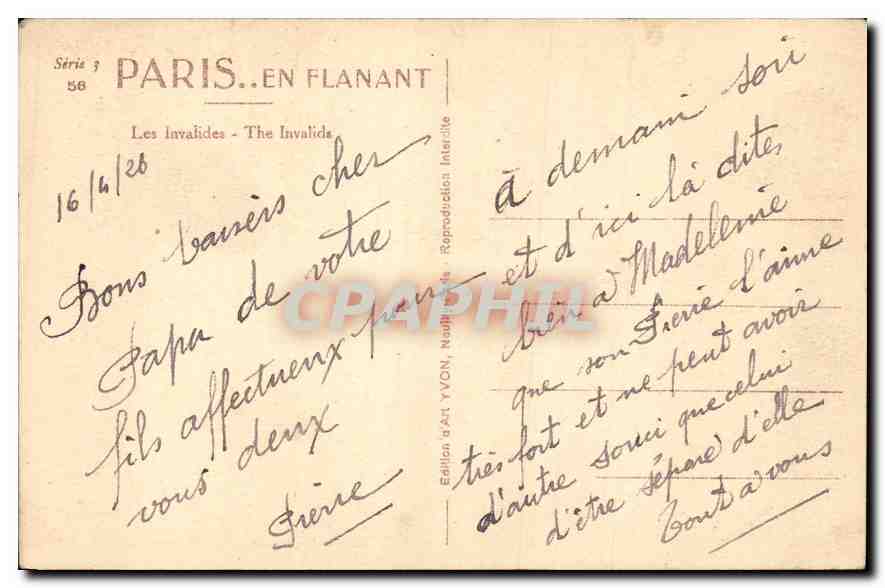 Série 3
56
PARIS..EN FLANANT
Les Invalides - The Invalids
16/4/26
Bons baisers cher
Papa de votre
fils affectueux pour
vous deux
Pierre
Edition d'Art YVON, Reproduction Interdite
à demain soir
et d'ici là dites
bien à Madeleine
que son Pierre l'aime
très fort et ne peut avoir
d'autre souci que celui
d'être séparé d'elle
Tout à vous
CPAPHIL